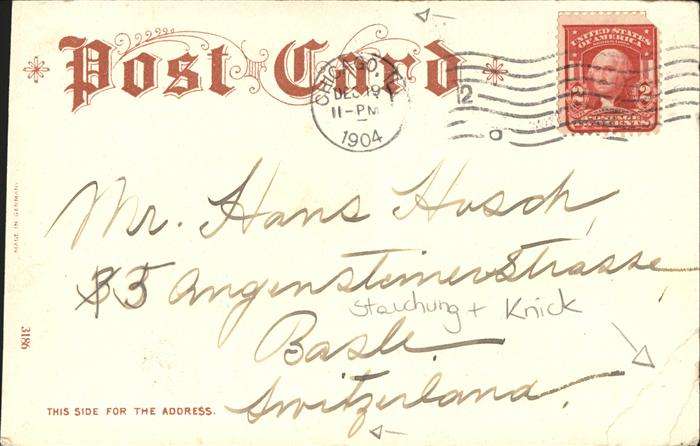 Post Card
CHICAGO, ILL.
DEC 19
11-PM
1904
2
UNITED STATES
OF AMERICA
2 2
POSTAGE
TWO CENTS
Mr. Hans Hosch,
35 Angensteinerstrasse
Starchung + Knick
Basle
Switzerland.
MADE IN GERMANY
3186
THIS SIDE FOR THE ADDRESS.